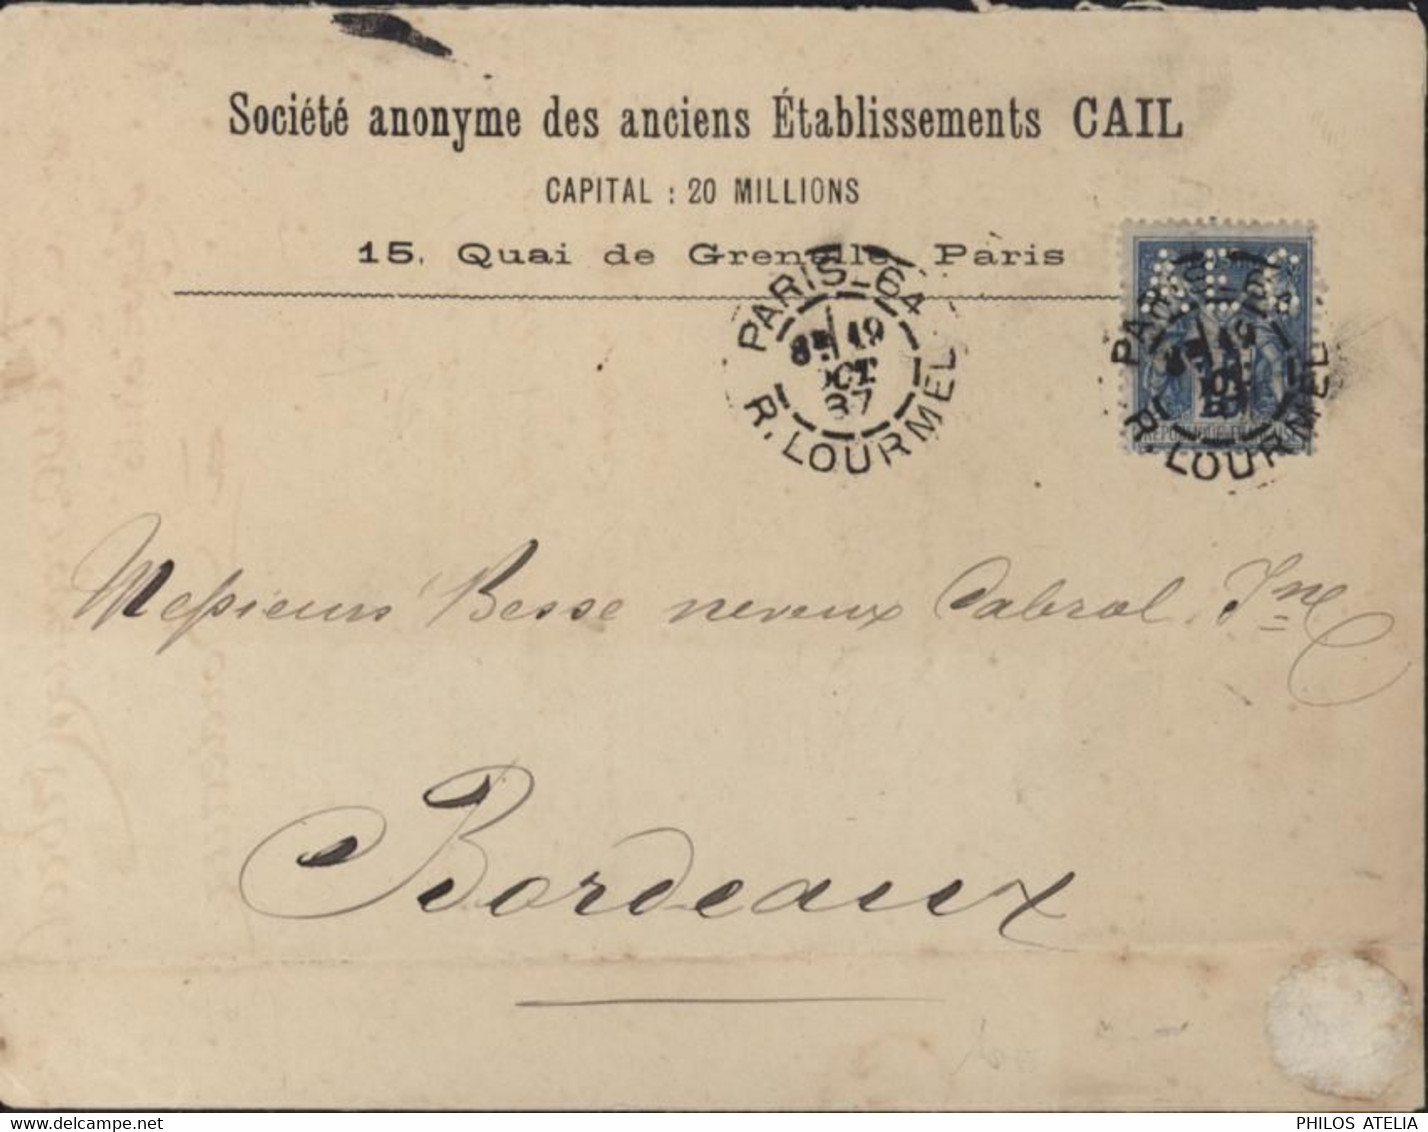 Société anonyme des anciens Établissements CAIL
CAPITAL : 20 MILLIONS
15, Quai de Grenelle, Paris
PARIS-64
19
OCT
87
R. LOURMEL
PARIS-64
19
R. LOURMEL
Messieurs Besse neveux Cabrol Jne
Bordeaux
PHILOS ATELIA